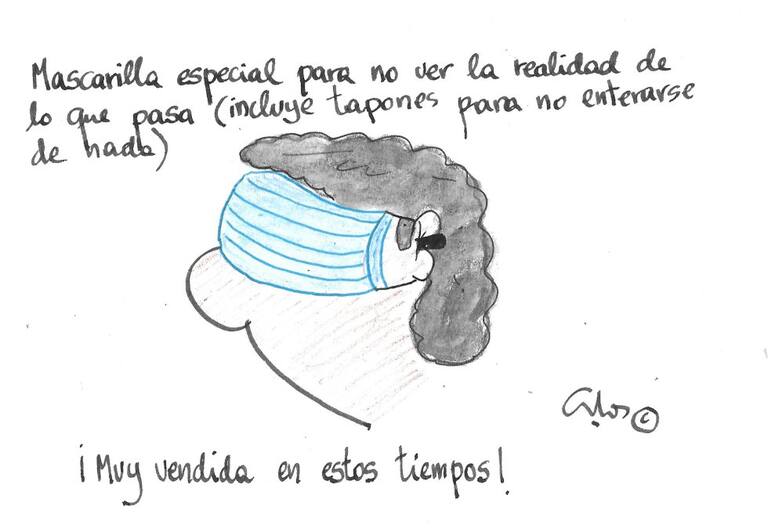 Mascarilla especial para no ver la realidad de
lo que pasa (incluye tapones para no enterarse
de nada)
©
¡Muy vendida en estos tiempos!